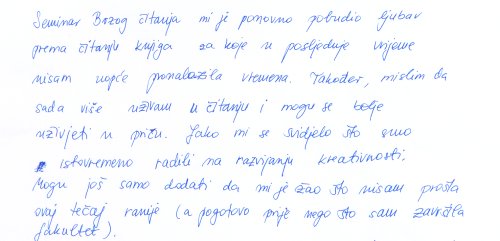 Seminar Brzog čitanja mi je ponovno pobudio ljubav
prema čitanju knjiga za koje u posljednje vrijeme
nisam uopće pronalazila vremena. Također, mislim da
sada više uživam u čitanju i mogu se bolje
uživjeti u priču. Jako mi se svidjelo što smo
istovremeno radili na razvijanju kreativnosti.
Mogu još samo dodati da mi je žao što nisam prošla
ovaj tečaj ranije (a pogotovo prije nego što sam završila
fakultet).